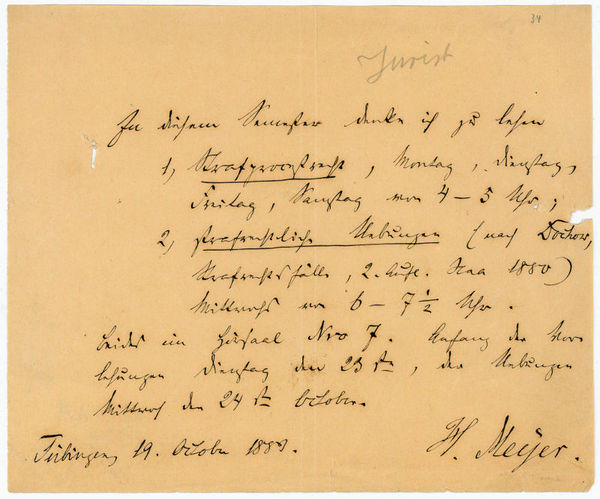 34
Jurist
In diesem Semester denke ich zu lesen
1, Strafprocessrecht, Montag, Dienstag,
Freitag, Samstag von 4 – 5 Uhr;
2, strafrechtliche Uebungen (nach Dochow,
Strafrechtsfälle, 2. Aufl. Jena 1880)
Mittwochs von 6 – 7 1/2 Uhr.
Beides im Hörsaal Nro 7. Anfang der Vor-
lesungen Dienstag den 23 ten, der Uebungen
Mittwoch den 24 ten October.
Tübingen, 19. October 1883.
H. Meyer.